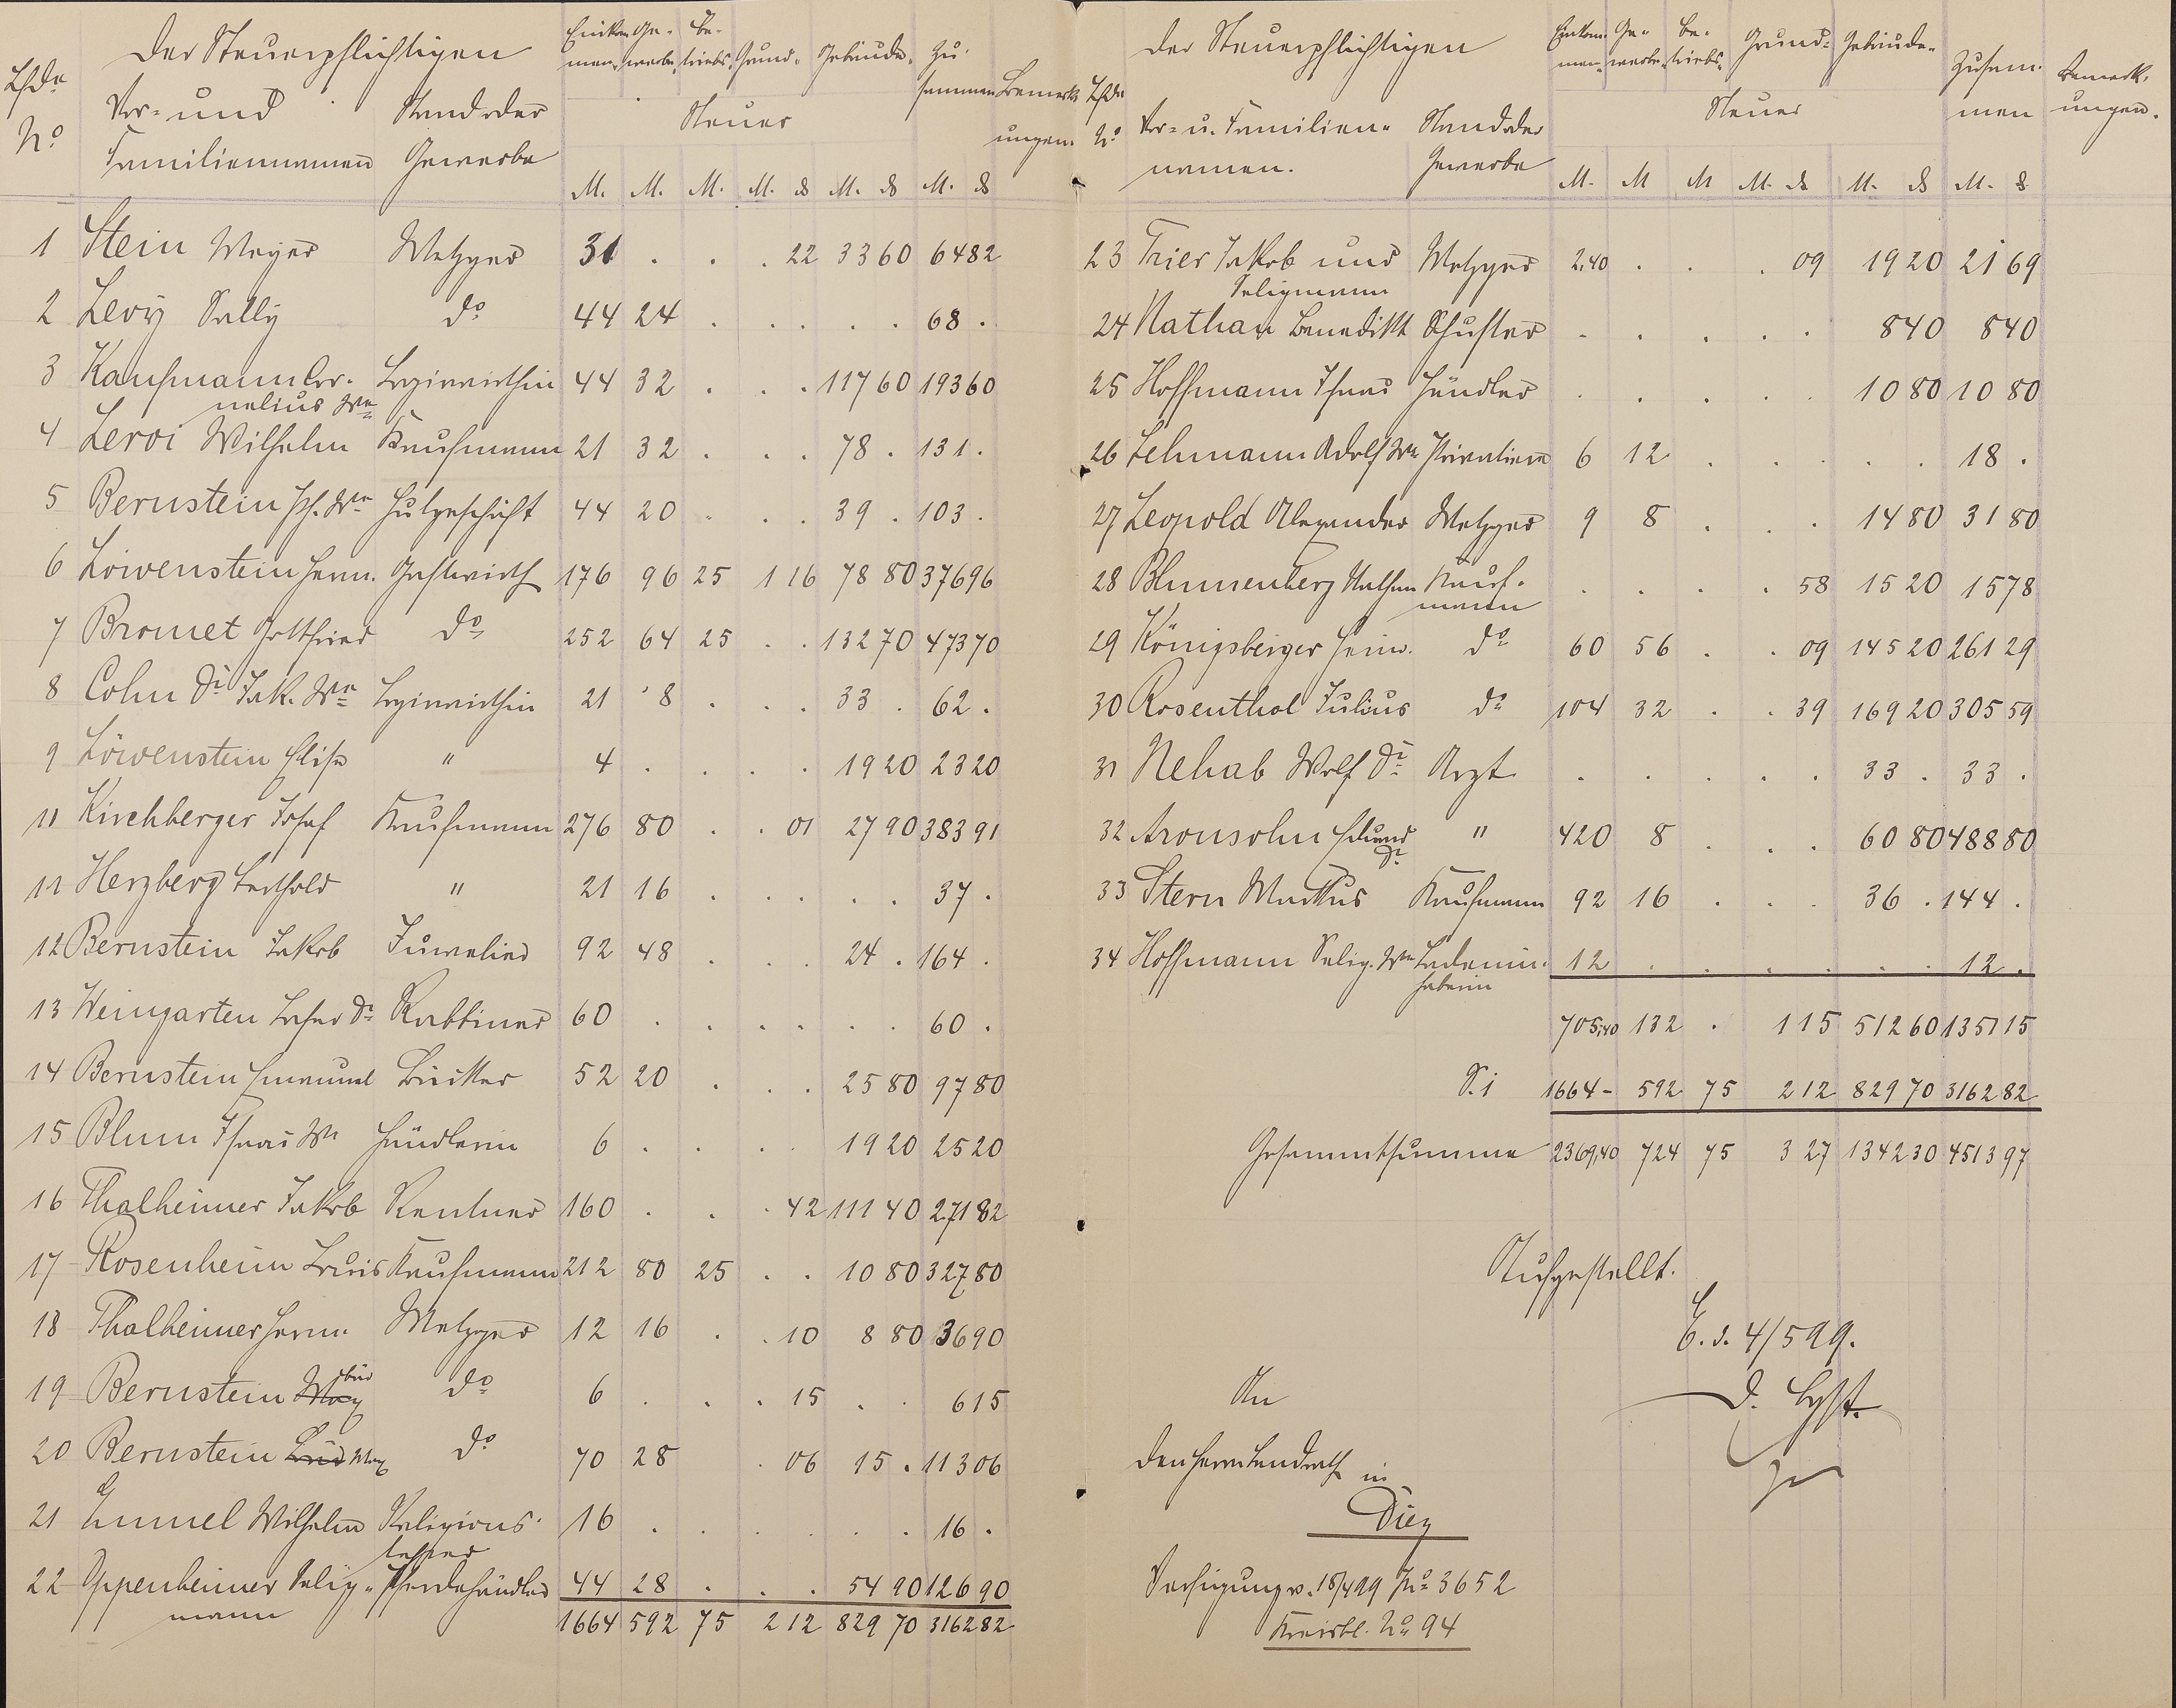 Der Steuerpflichtigen Einkom- Ge- Be- Grund- Gebäude- Zu-
Lfde men- werbe- triebs- sammen Bemerk-
No Vor- und Stand oder Steuer ungen.
Familiennamen Gewerbe
M. M. M. M. ₰ M. ₰ M. ₰
1 Stein Meyer Metzger 31 . . . 22 33 60 64 82
2 Levy Sally do 44 24 . . . . . 68 .
3 Kaufmann Cor- Logierwirthin 44 32 . . . 117 60 193 60
nelius We
4 Leroi Wilhelm Kaufmann 21 32 . . . 78 . 131 .
5 Bernstein Jos. We Hutgeschäft 44 20 . . . 39 . 103 .
6 Löwenstein Herm. Gastwirth 176 96 25 1 16 78 80 376 96
7 Bromet Gottfried do 252 64 25 . . 132 70 473 70
8 Cohn Dr Jak. We Logierwirthin 21 8 . . . 33 . 62 .
9 Löwenstein Elise " 4 . . . . 19 20 23 20
11 Kirchberger Josef Kaufmann 276 80 . . 01 27 90 383 91
11 Herzberg Berthold " 21 16 . . . . . 37 .
12 Bernstein Jakob Juwelier 92 48 . . . 24 . 164 .
13 Weingarten Dr Rabbiner 60 . . . . . . 60 .
14 Bernstein Emanuel 52 20 . . . 25 80 97 80
15 Blum Isaac We Händlerin 6 . . . . 19 20 25 20
16 Thalheimer Jakob Rentner 160 . . . 42 111 40 271 82
17 Rosenheim Louis Kaufmann 212 80 25 . . 10 80 327 80
18 Thalheimer Herm. Metzger 12 16 . . 10 8 80 36 90
19 Bernstein Max do 6 . . . 15 . . 6 15
20 Bernstein Max do 70 28 . 06 15 . 113 06
21 Emmel Wilhelm Religions- 16 . . . . . . 16 .
lehrer
22 Oppenheimer Selig- Pferdehändler 44 28 . . . 54 90 126 90
mann
1664 592 75 2 12 829 70 3162 82
Der Steuerpflichtigen Einkom- Ge- Be- Grund- Gebäude- Zusam- Bemerk-
Lfde men- werbe- triebs- men ungen.
No Vor- u. Familien- Stand oder Steuer
namen. Gewerbe
M. M M M. ₰ M. ₰ M. ₰
23 Trier Jakob und Metzger 2,40 . . . 09 19 20 21 69
Seligmann
24 Nathan Benedikt Schuster . . . . . 8 40 8 40
25 Hoffmann Isaac Händler . . . . . 10 80 10 80
26 Lehmann Adolf We Privatiere 6 12 . . . . . 18 .
27 Leopold Alexander Metzger 9 8 . . . 14 80 31 80
28 Blumenberg Nathan Kauf- . . . . 58 15 20 15 78
mann
29 Königsberger Heinr. do 60 56 . . 09 145 20 261 29
30 Rosenthal Julius do 104 32 . . 39 169 20 305 59
31 Nehab Wolf Dr Arzt . . . . . 33 . 33 .
32 Aronsohn Eduard " 420 8 . . . 60 80 488 80
Dr
33 Stern Markus Kaufmann 92 16 . . . 36 . 144 .
34 Hoffmann Selig. We Ladenin- 12 . . . . . . 12 .
haberin
705,40 132 . 1 15 512 60 1351 15
S. 1 1664 - 592 75 2 12 829 70 3162 82
Gesammtsumme 2369,40 724 75 3 27 1342 30 4513 97
Aufgestellt.
E. d. 4/5 99.
An
den Herrn Landrath in
Diez
Verfügung v. 15/4 99 No 3652
Kreisbl. No 94